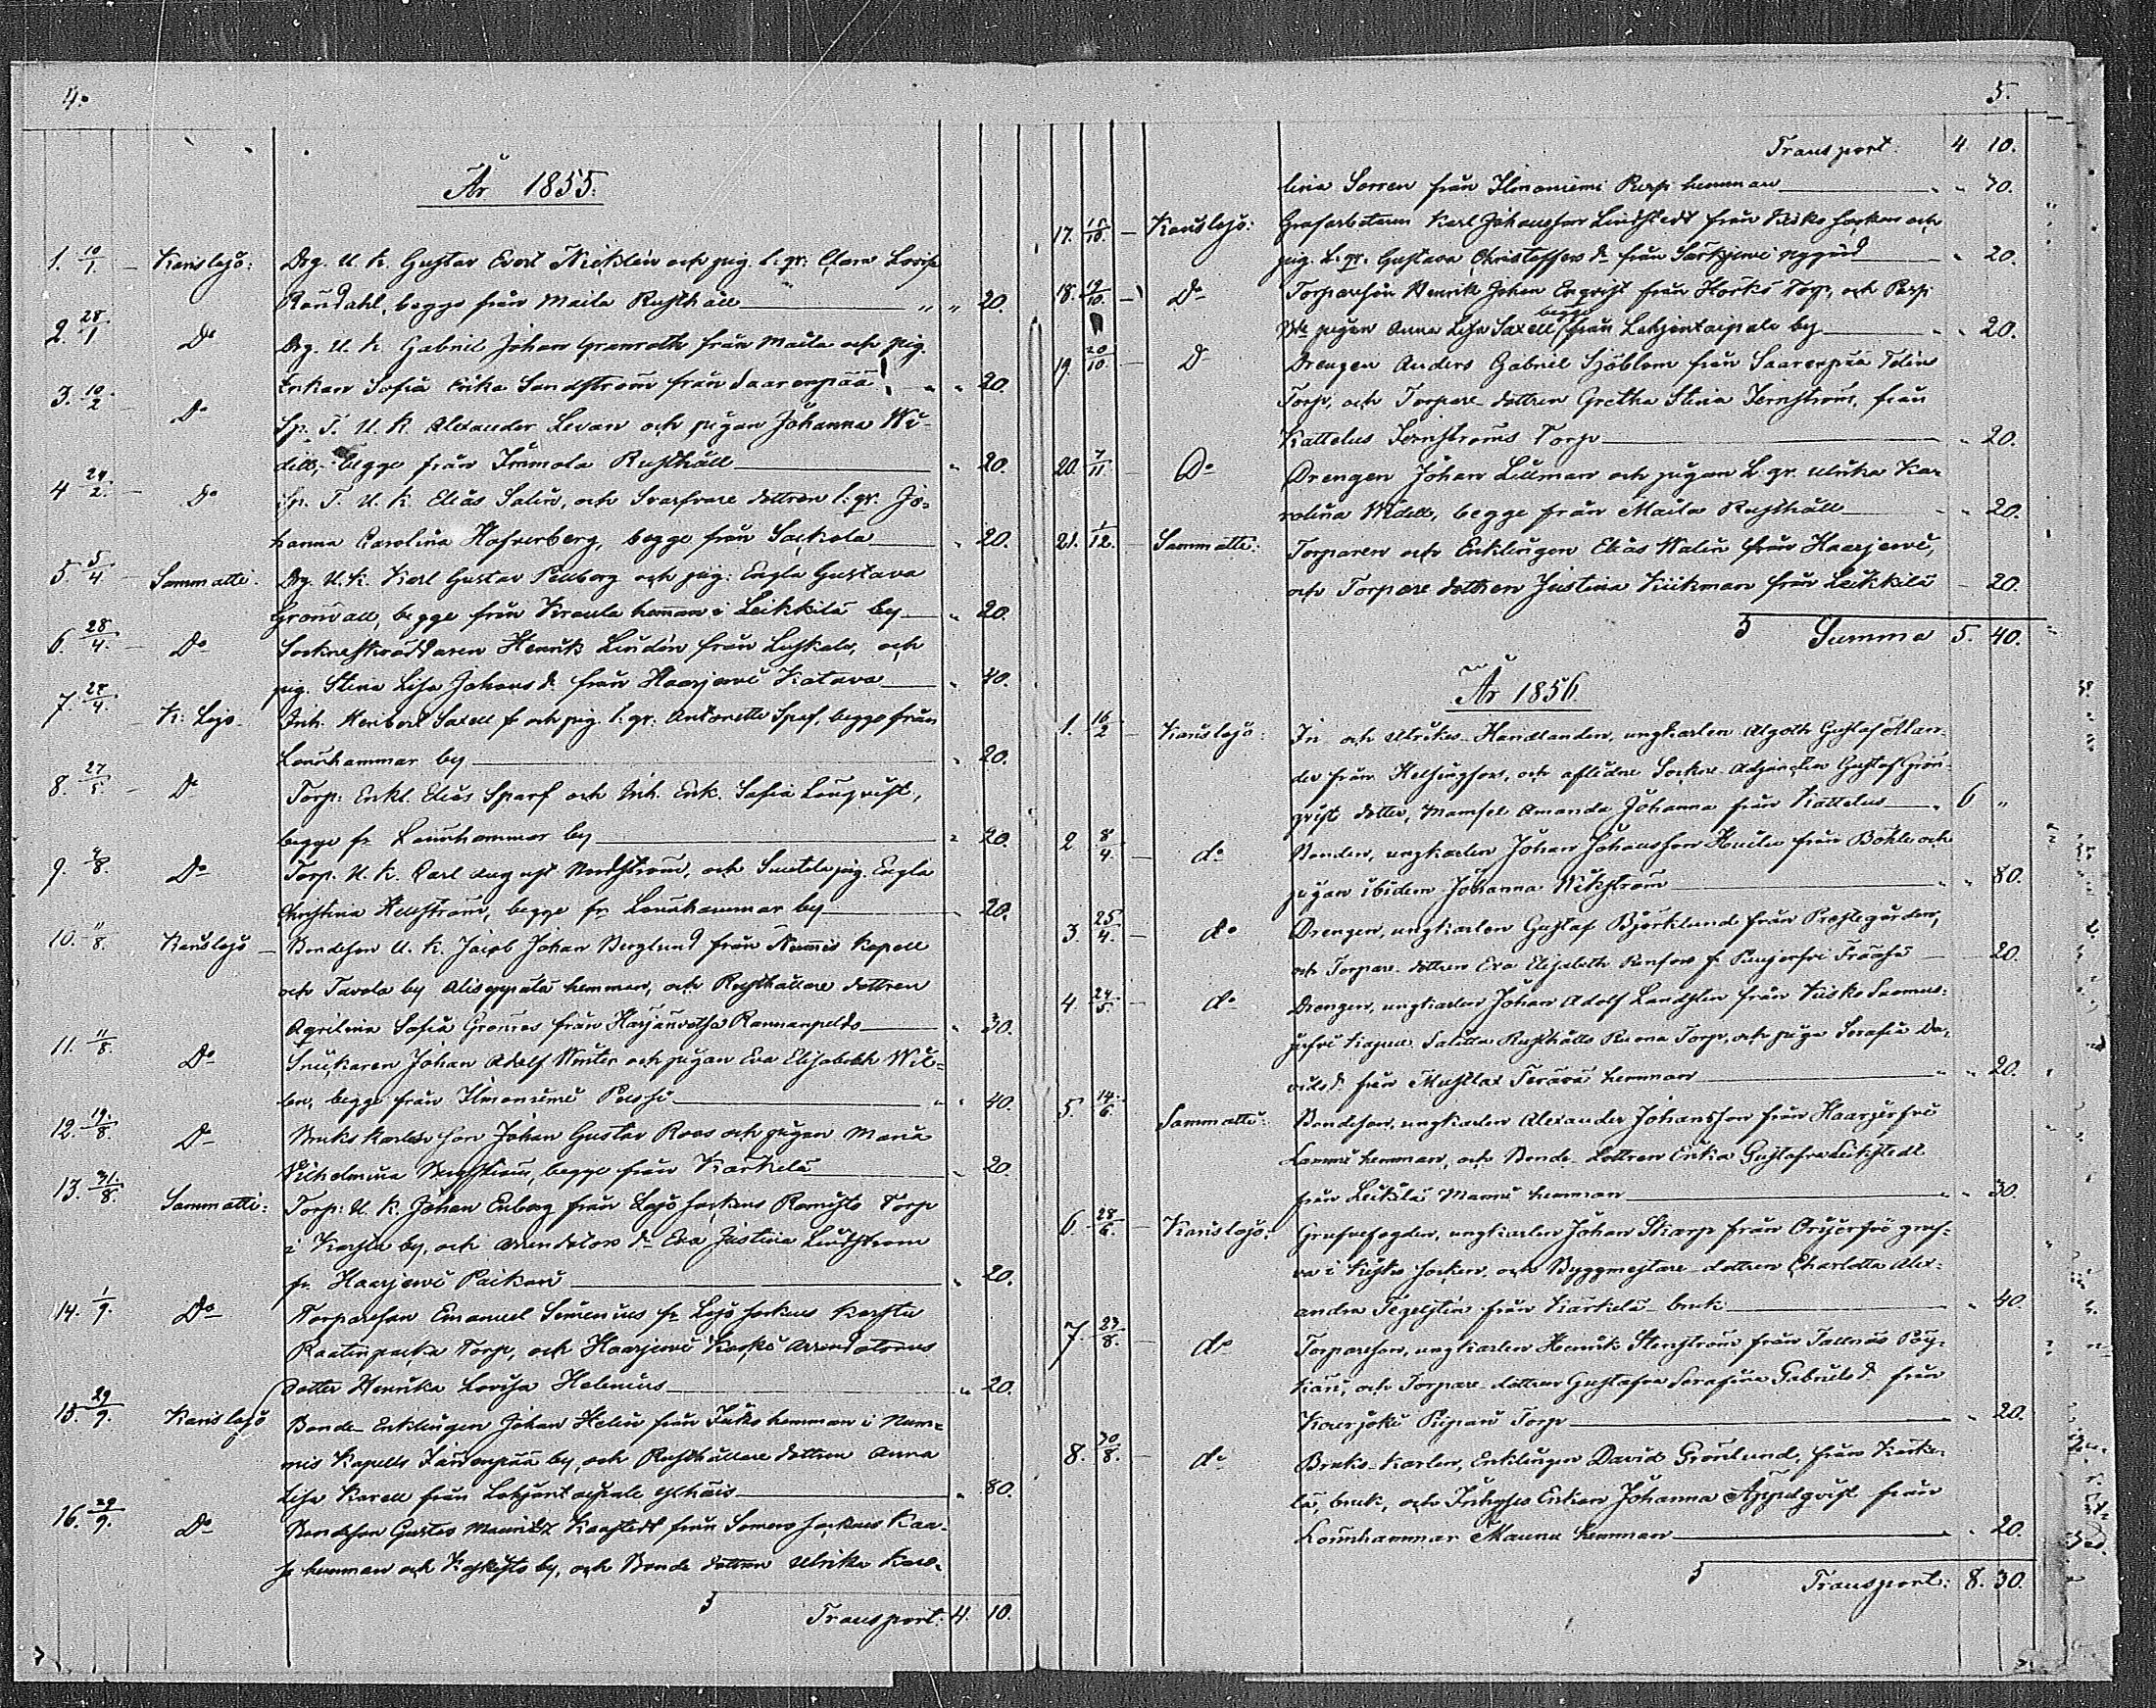 4.
År 1855.
1. 10/1. Karislojo: Drg. U. K. Gustav Evert Nicklén och pig. l. qv. Clara Lovisa
Rändahl, begge från Maila Rusthåll " " 20.
2. 28/1 Do Drg. U. k. Gabriel Johan Granroth från Maila och pig.
Enkan Sofia Erika Sandström från Saarenpää " " 20.
3. 10/2 Do Sp. T. U. K. Alexander Levan och pigan Johanna Wi-
dell, begge från Immola Rusthåll " 20.
4 24/2. Do Sp. T. U. K. Elias Salin, och Svarfvare dottren l. qv. Jo-
hanna Carolina Hafverberg, begge från Sackola " 20.
5 5/4 Sammatti. Drg. U. K. Karl Gustav Pellborg och pig: Engla Gustava
Grönvall, begge från Kraula hemman i Leikkilä by " 20.
6. 28/4. Do Sockneskräddaren Henrik Lindén från Luskala, och
pig. Stina Lisa Johans d. från Haarjerwi Katava " 40.
7. 28/4. K: Lojo Inh. Heribert Saxell fr och pig. l. qv. Antonetta Sparf, begge från
Lönnhammar by " 20.
8. 27/5 Do Torp: Enkl. Elias Sparf och Inh. Enk. Sofia Lönqvist,
begge fr Lönnhammar by " 20.
9. 4/8. Do Torp. U. K. Carl August Nordström, och pig. Engla
Christina Hellström, begge fr. Lönnhammar by " 20.
10. 11/8. Karislojo Bondeson U. K. Jacob Johan Berglund från Nummis Kapell
och Tavola by Alisippala hemman, och Rusthållare dottren
Agrilina Sofia Grönros från Harjanvatsa Rannanpeldo " 30.
11. 11/8. Do Snickaren Johan Adolf Winter och pigan Eva Elisabeth Wil-
len, begge från Ilmoniemi Pussi " 40.
12. 19/8. Do Brukskarlsson Johan Gustav Roos och pigan Maria
Vilhelmina Bergström, begge från Kärkelä " 20.
13. 31./8. Sammatti: Torp: U. K. Johan Enberg från Lojo Sockens Torp
i Karstu by, och Arrendators dr Eva Justina Lindström
fr. Haarjerwi Paikari " 20.
14. 1/9. Do Torpareson Emanuel Simenius fr Lojo Sockens Karstu
Torp, och Haarjerwi Arrendatorens
dotter Henrika Lovisa Helenius " 20.
15. 29/9. Karislojo Bonde-Enklingen Johan Helin från hemman i Num-
mis Kapells Jättenpää by, och Rusthållare dottren Anna
Lisa Karell från Lohjantaipale " 80.
16. 29/9. Do Bondeson Gustav Mauritz Kaastedt från Somero Sockens Kaa-
hemman och by, och Bonde dottren Ulrika Karo-
Transport: 4. 10.
5.
Transport. 4 10.
lina Sorren från Ilmoniemi Pussi hemman " " 30.
17. 15/10. Karislojo: Grufarbetaren Karl Johansson Lindstedt från Kisko Socken och
pig. l. qv. Gustava Christoffers dr från Särkjerwi nygård " 20.
18. 19/10. Do Torparesson Henrik Johan Enqvist från Torp, och
pigan Anna Lisa Saxell begge från Lohjantaipale by " 20.
19. 20/10. Do Drengen Anders Gabriel Sjöblom från Saarenpää
Torp, och Torpare-dottren Gretha Stina Jernström, från
Kattelus Jernströms Torp " 20.
20. 7/11. Do Drengen Johan Lillman och pigan l. qv. Ulrika Ka-
rolina Widell, begge från Maila Rusthåll " 20.
21. 1/12. Sammatti: Torparen och Enklingen Elias Walin från Haarjerwi,
och Torpare dottren Justina Kiikman från Leikkilä 20.
Summa 5. 40.
År 1856.
1. 16/2 Karislojo: In- och Utrikes-Handlanden, ungkarlen Algoth Gustaf Ölan-
der från Helsingfors, och aflidne Sockne-Adjuncten Gustaf Grön-
qvist dotter, Mamsel Amanda Johanna från Kattelus " 6 "
2 8/4. do Bonden, ungkarlen Johan Johansson från Böhle och
pigan ibidem Johanna Wikström " " 80.
3. 25/4. do Drengen, ungkarlen Gustaf Björklund från Prestegården,
och Torpare-dottren Eva Elisabeth Renfors fr. Träskä 20.
4. 24/5. do Drengen, ungkarlen Johan Adolf Landstén från Kisko Suomus-
järfvi kapell Salitta Rusthålls Ruona Torp, och piga Serafia Da-
vids d. från Mustlax Terävä hemman " " 20.
5. 14/6. Sammatti: Bondeson, ungkarlen Alexander Johansson från Haarjerfvi
Lammi hemman, och Bonde-dottren Erika Gustafva Leikstedt
från Leikilä Mannu hemman " 30.
6. 28/6. Karislojo: Grufvefogden, ungkarlen Johan Skarp från Orijärfvi gruf-
va i Kisko Socken, och Byggmestare-dottren Charlotta Alex-
andra Tegelstén från Kärkelä-bruk " 40.
7. 23/8. do Torpareson, ungkarlen Henrik Stenström från Tallnäs Pöy-
käri, och Torpare-dottren Gustafva Serafina Gabriels d. från
Kourjoki Piipari Torp " 20.
8. 30/8. do Bruks-karlen, Enklingen David Grönlund, från Kärke-
lä, bruk, och Inhyses Enkan Johanna Appelqvist från
Lönnhammar Maunu hemman " 20.
Transport: 8. 30.